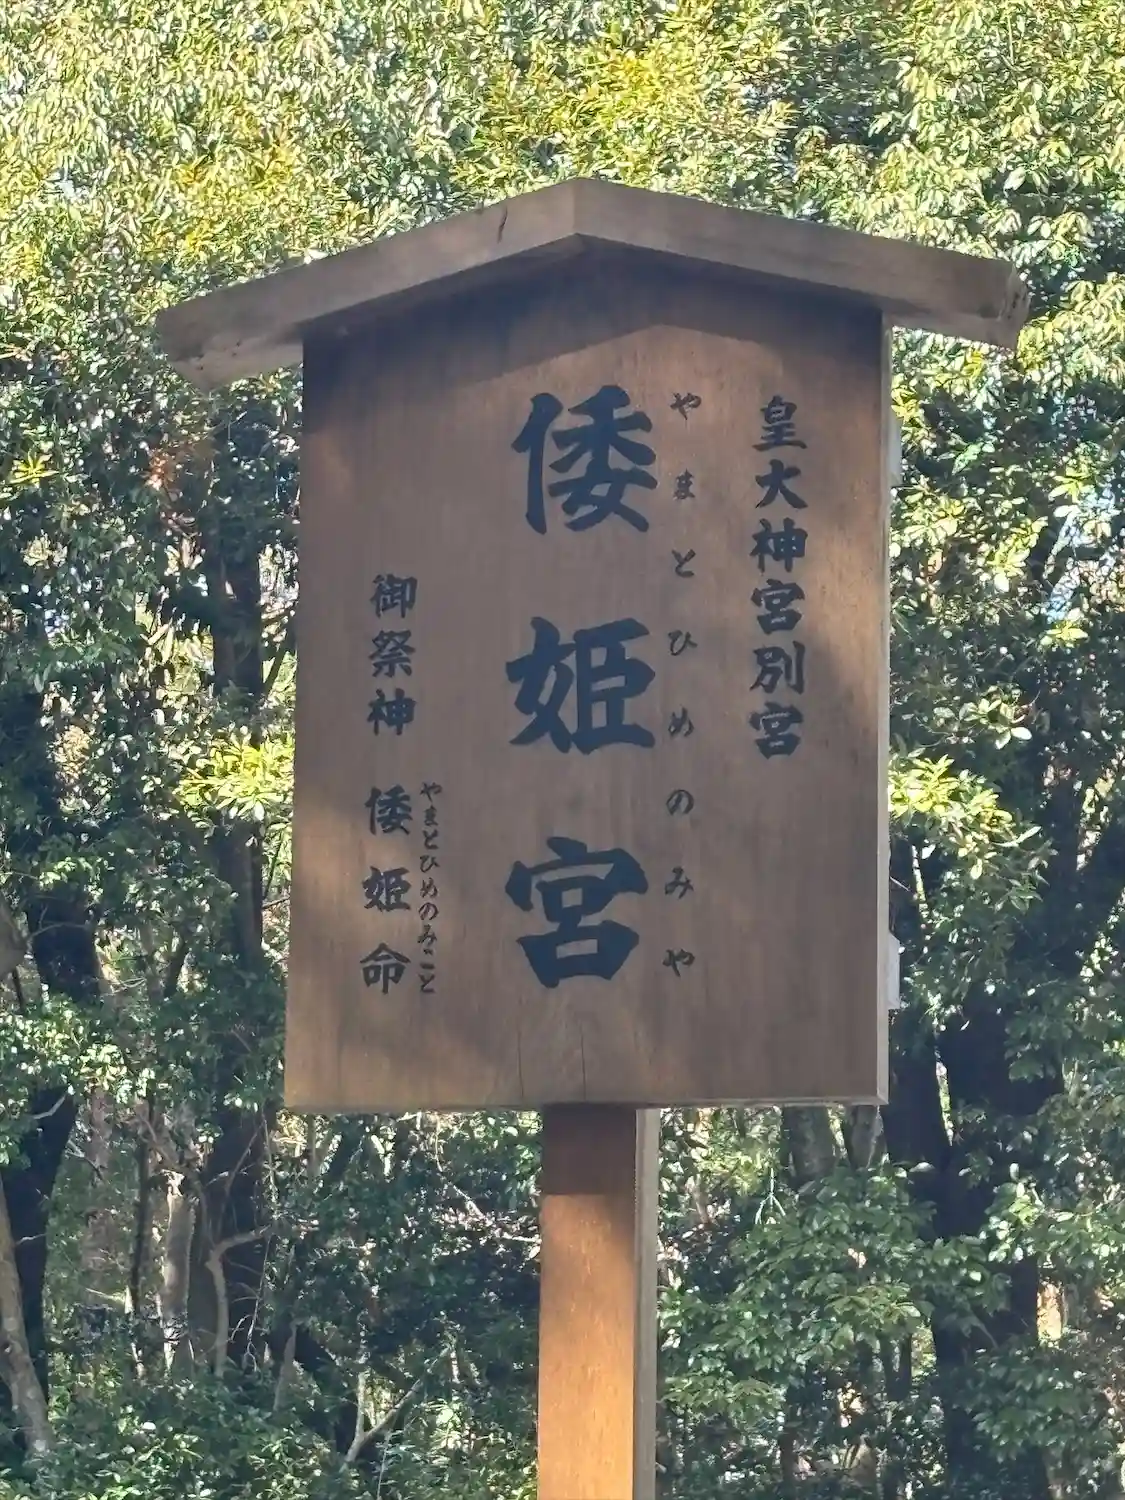 皇大神宮別宮
やまとひめのみや
倭姫宮
やまとひめのみこと
御祭神 倭姫命